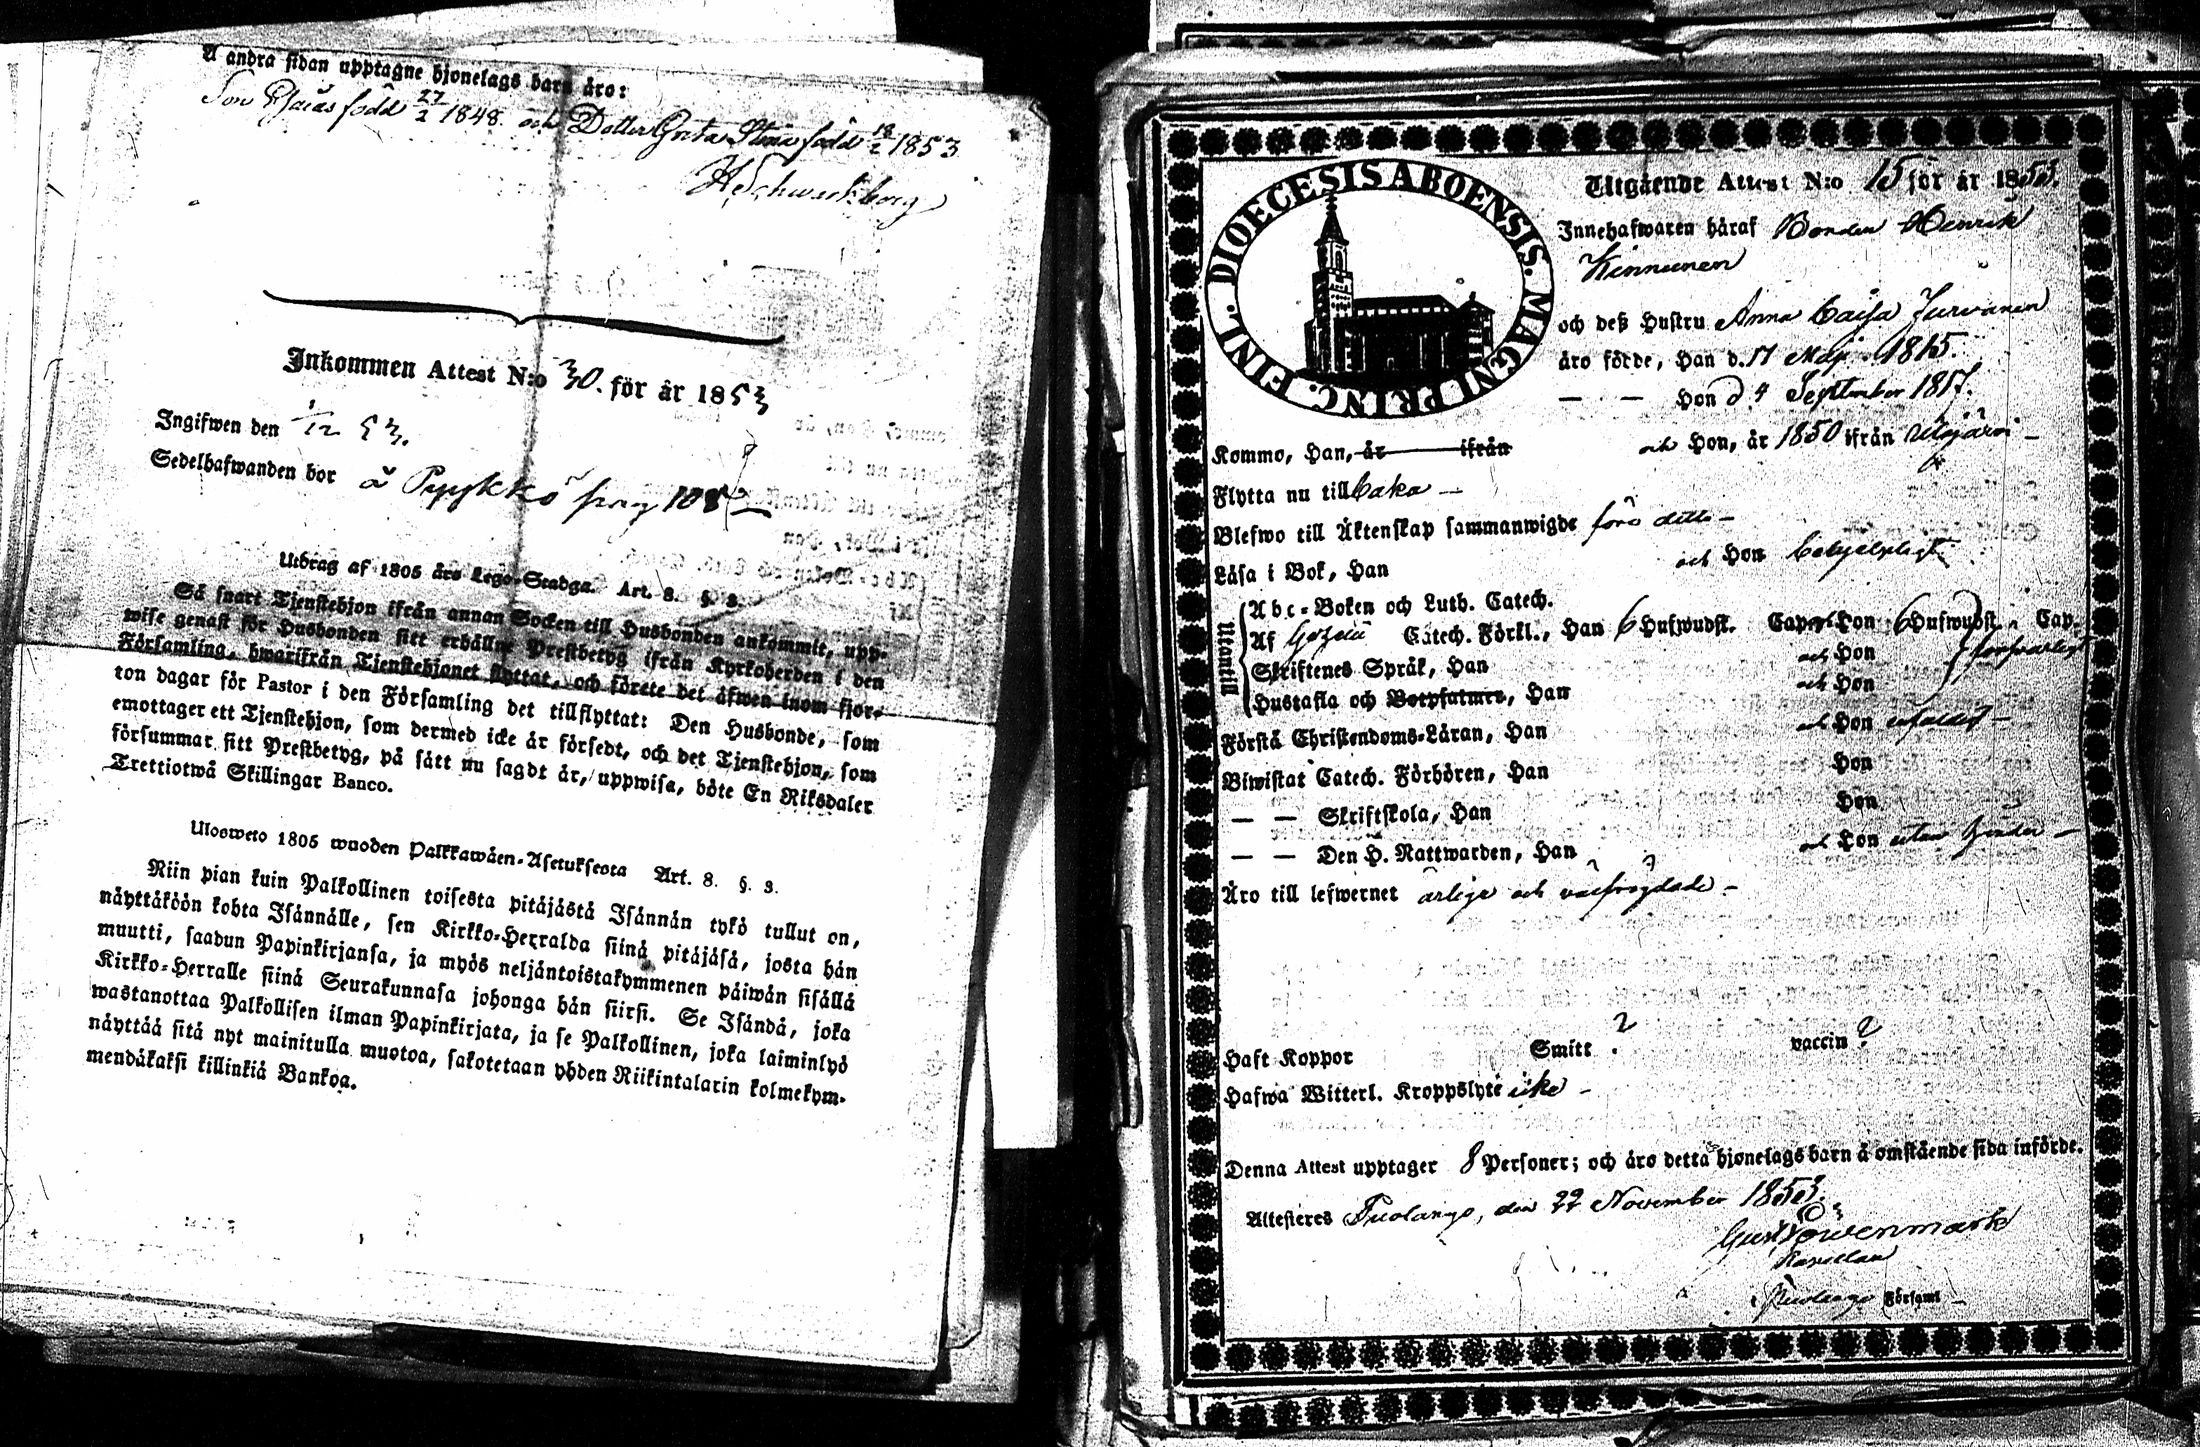 Å andra sidan upptagne hjonelags barn äro:
Son Esaias född 27/2 1848. och Dotter Greta Stina född 18/2 1853
Inkommen Attest N:o 30. för år 1853
Ingifwen den 1/12 53.
Sedelhafwanden bor å Pyykkö
Utdrag af 1805 års Lego-Stadga. Art. 8. §. 3.
Så snart Tjenstehjon ifrån annan Socken till Husbonden ankommit, upp-
wise genast för Husbonden sitt erhållne Prestbetyg ifrån Kyrkoherden i den
Församling, hwarifrån Tjenstehjonet flyttat, och förete det äfwen inom fjor-
ton dagar för Pastor i den Församling det tillflyttat: Den Husbonde, som
emottager ett Tjenstehjon, som dermed icke är försedt, och det Tjenstehjon, som
försummar sitt Prestbetyg, på sätt nu sagdt är, uppwisa, böte En Riksdaler
Trettiotwå Skillingar Banco.
Ulosweto 1805 wuoden Palkkawäen-Asetuksesta Art. 8. §. 3.
Niin pian kuin Palkollinen toisesta pitäjästä Isännän tykö tullut on,
näyttäköön kohta Isännälle, sen Kirkko-Herralda siinä pitäjäsä, josta hän
muutti, saadun Papinkirjansa, ja myös neljäntoistakymmenen päiwän sisällä
Kirkko-Herralle siinä Seurakunnasa johonga hän siirsi. Se Isändä, joka
wastanottaa Palkollisen ilman Papinkirjata, ja se Palkollinen, joka laiminlyö
näyttää sitä nyt mainitulla muotoa, sakotetaan yhden Riikintalarin kolmekym-
mendäkaksi killinkiä Bankoa.
DIOECESIS ABOENSIS. MAGNI PRINC. FINL.
Utgående Attest N:o 15 för år 1853.
Innehafwaren häraf Bonden Henrik
Kinnunen
och deß Hustru Anna Caisa Jurvanen
äro födde, Han d. 17 Maji 1815.
— — Hon d. 4 September 1817.
Kommo, Han, år ifrån och Hon, år 1850 ifrån
Flytta nu till
Blefwo till Äktenskap sammanwigde före ditto —
Läsa i Bok, Han och Hon behjelpligt
Utantill
Abc-Boken och Luth. Catech.
Af Catech. Förkl., Han 6 Hufwudst. Cap. Hon 6 Hufwudst. Cap.
Skriftenes Språk, Han och Hon försvarligt
Hustafla och Botpsalmer, Han och Hon
Förstå Christendoms-Läran, Han och Hon
Biwistat Catech. Förhören, Han Hon
— — Skriftskola, Han Hon
— — Den H. Nattwarden, Han och Hon utan hinder —
Äro till lefwernet ärlige och välfrejdade —
Haft Koppor Smitt ? vaccin ?
Hafwa Witterl. Kroppslyte icke —
Denna Attest upptager 8 Personer; och äro detta hjonelags barn å omstående sida införde.
Attesteres Puolango, den 22 November 1853.
Gust. Löwenmark
Kapellan
i Puolango Församl —